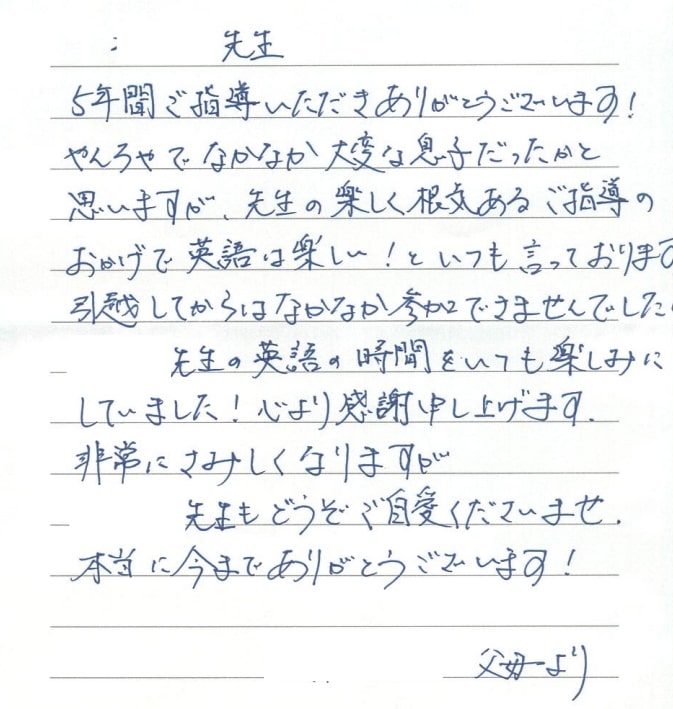 先生
5年間ご指導いただきありがとうございます!
やんちゃでなかなか大変な息子だったかと
思いますが、先生の楽しく根気あるご指導の
おかげで英語は楽しい!といつも言っております
引越してからはなかなか参加できませんでした
先生の英語の時間をいつも楽しみに
していました!心より感謝申し上げます.
非常にさみしくなりますが
先生もどうぞご自愛くださいませ.
本当に今までありがとうございます!
父母より